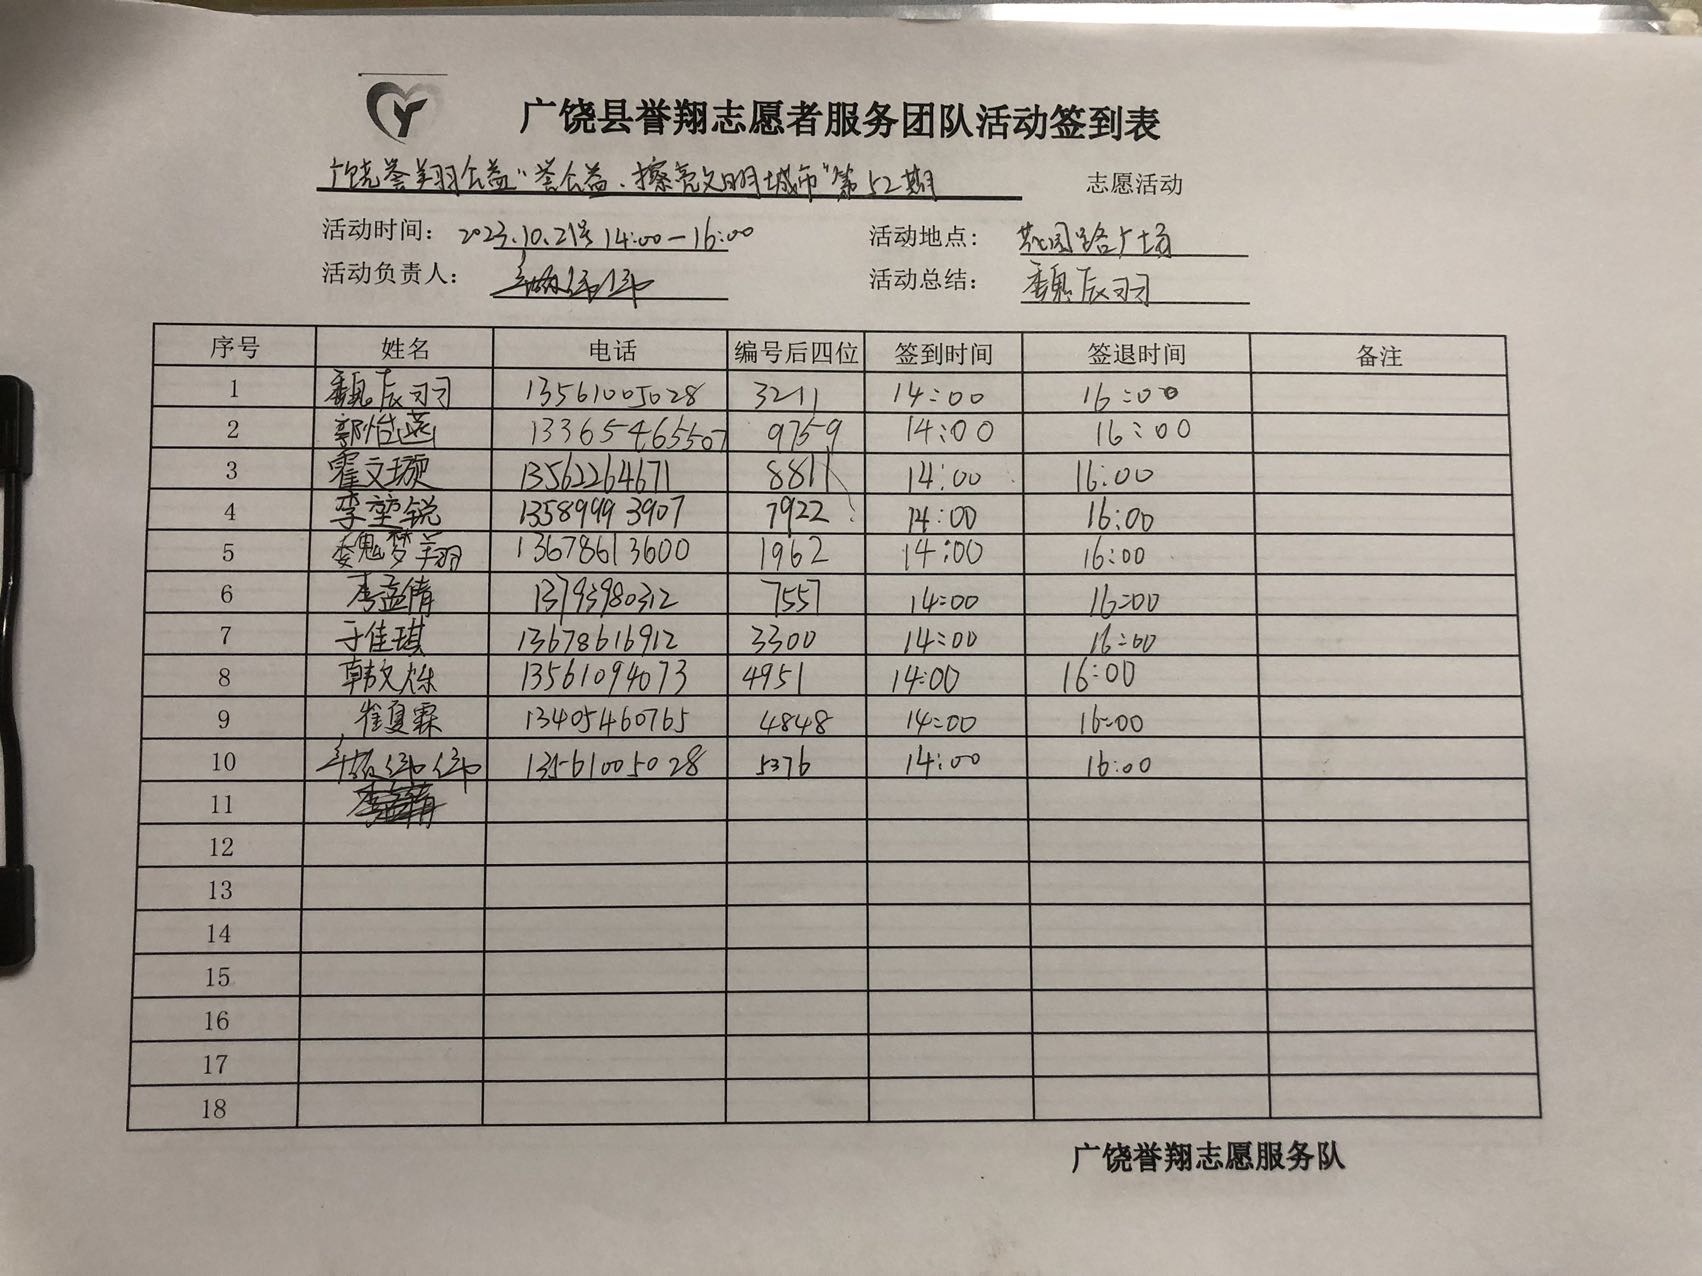 广饶县誉翔志愿者服务团队活动签到表
广饶誉翔公益“誉公益、擦亮文明城市”第52期 志愿活动
活动时间: 2023.10.21号 14:00-16:00 活动地点: 花园路广场
活动负责人: 活动总结: 魏辰羽
序号 姓名 电话 编号后四位 签到时间 签退时间 备注
1 魏辰羽 13561005028 3211 14:00 16:00
2 郭怡菡 13365465507 9759 14:00 16:00
3 霍文顼 13562264671 8811 14:00 16:00
4 李堃锐 13589993907 7922 14:00 16:00
5 魏梦翔 13678613600 1962 14:00 16:00
6 李孟倩 13793980312 7557 14:00 16:00
7 于佳琪 13678616912 3300 14:00 16:00
8 韩文烁 13561094073 4951 14:00 16:00
9 崔夏霖 13405460765 4848 14:00 16:00
10 13561005028 5376 14:00 16:00
11 李孟倩
12
13
14
15
16
17
18
广饶誉翔志愿服务队